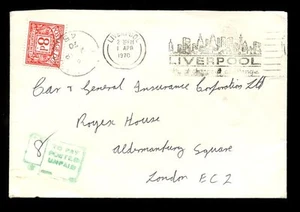 8d
LIVERPOOL
1 APR
1970
LIVERPOOL
Car & General Insurance Corporation Ltd
Royex House
Aldermanbury Square
London EC2
8
TO PAY
POSTED
UNPAID